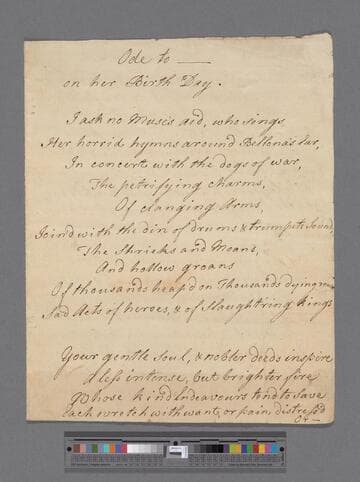 Ode to ——
on her Birth Day.
I ask no Muse's aid, who sings
Her horrid hymns around Bellona's Car,
In concert with the dogs of war,
The petrifying charms,
Of clanging Arms,
Joind with the din of drums & trumpets sound,
The Shrieks and Moans,
And hollow groans
Of thousands heap'd on Thousands dying
Sad Acts of heroes, & of Slaught'ring Kings
Your gentle Soul, & nobler deeds inspire
A less intense, but brighter fire
Whose kind Endeavours tend to save
Each wretch with want, or pain, distress'd
Or —